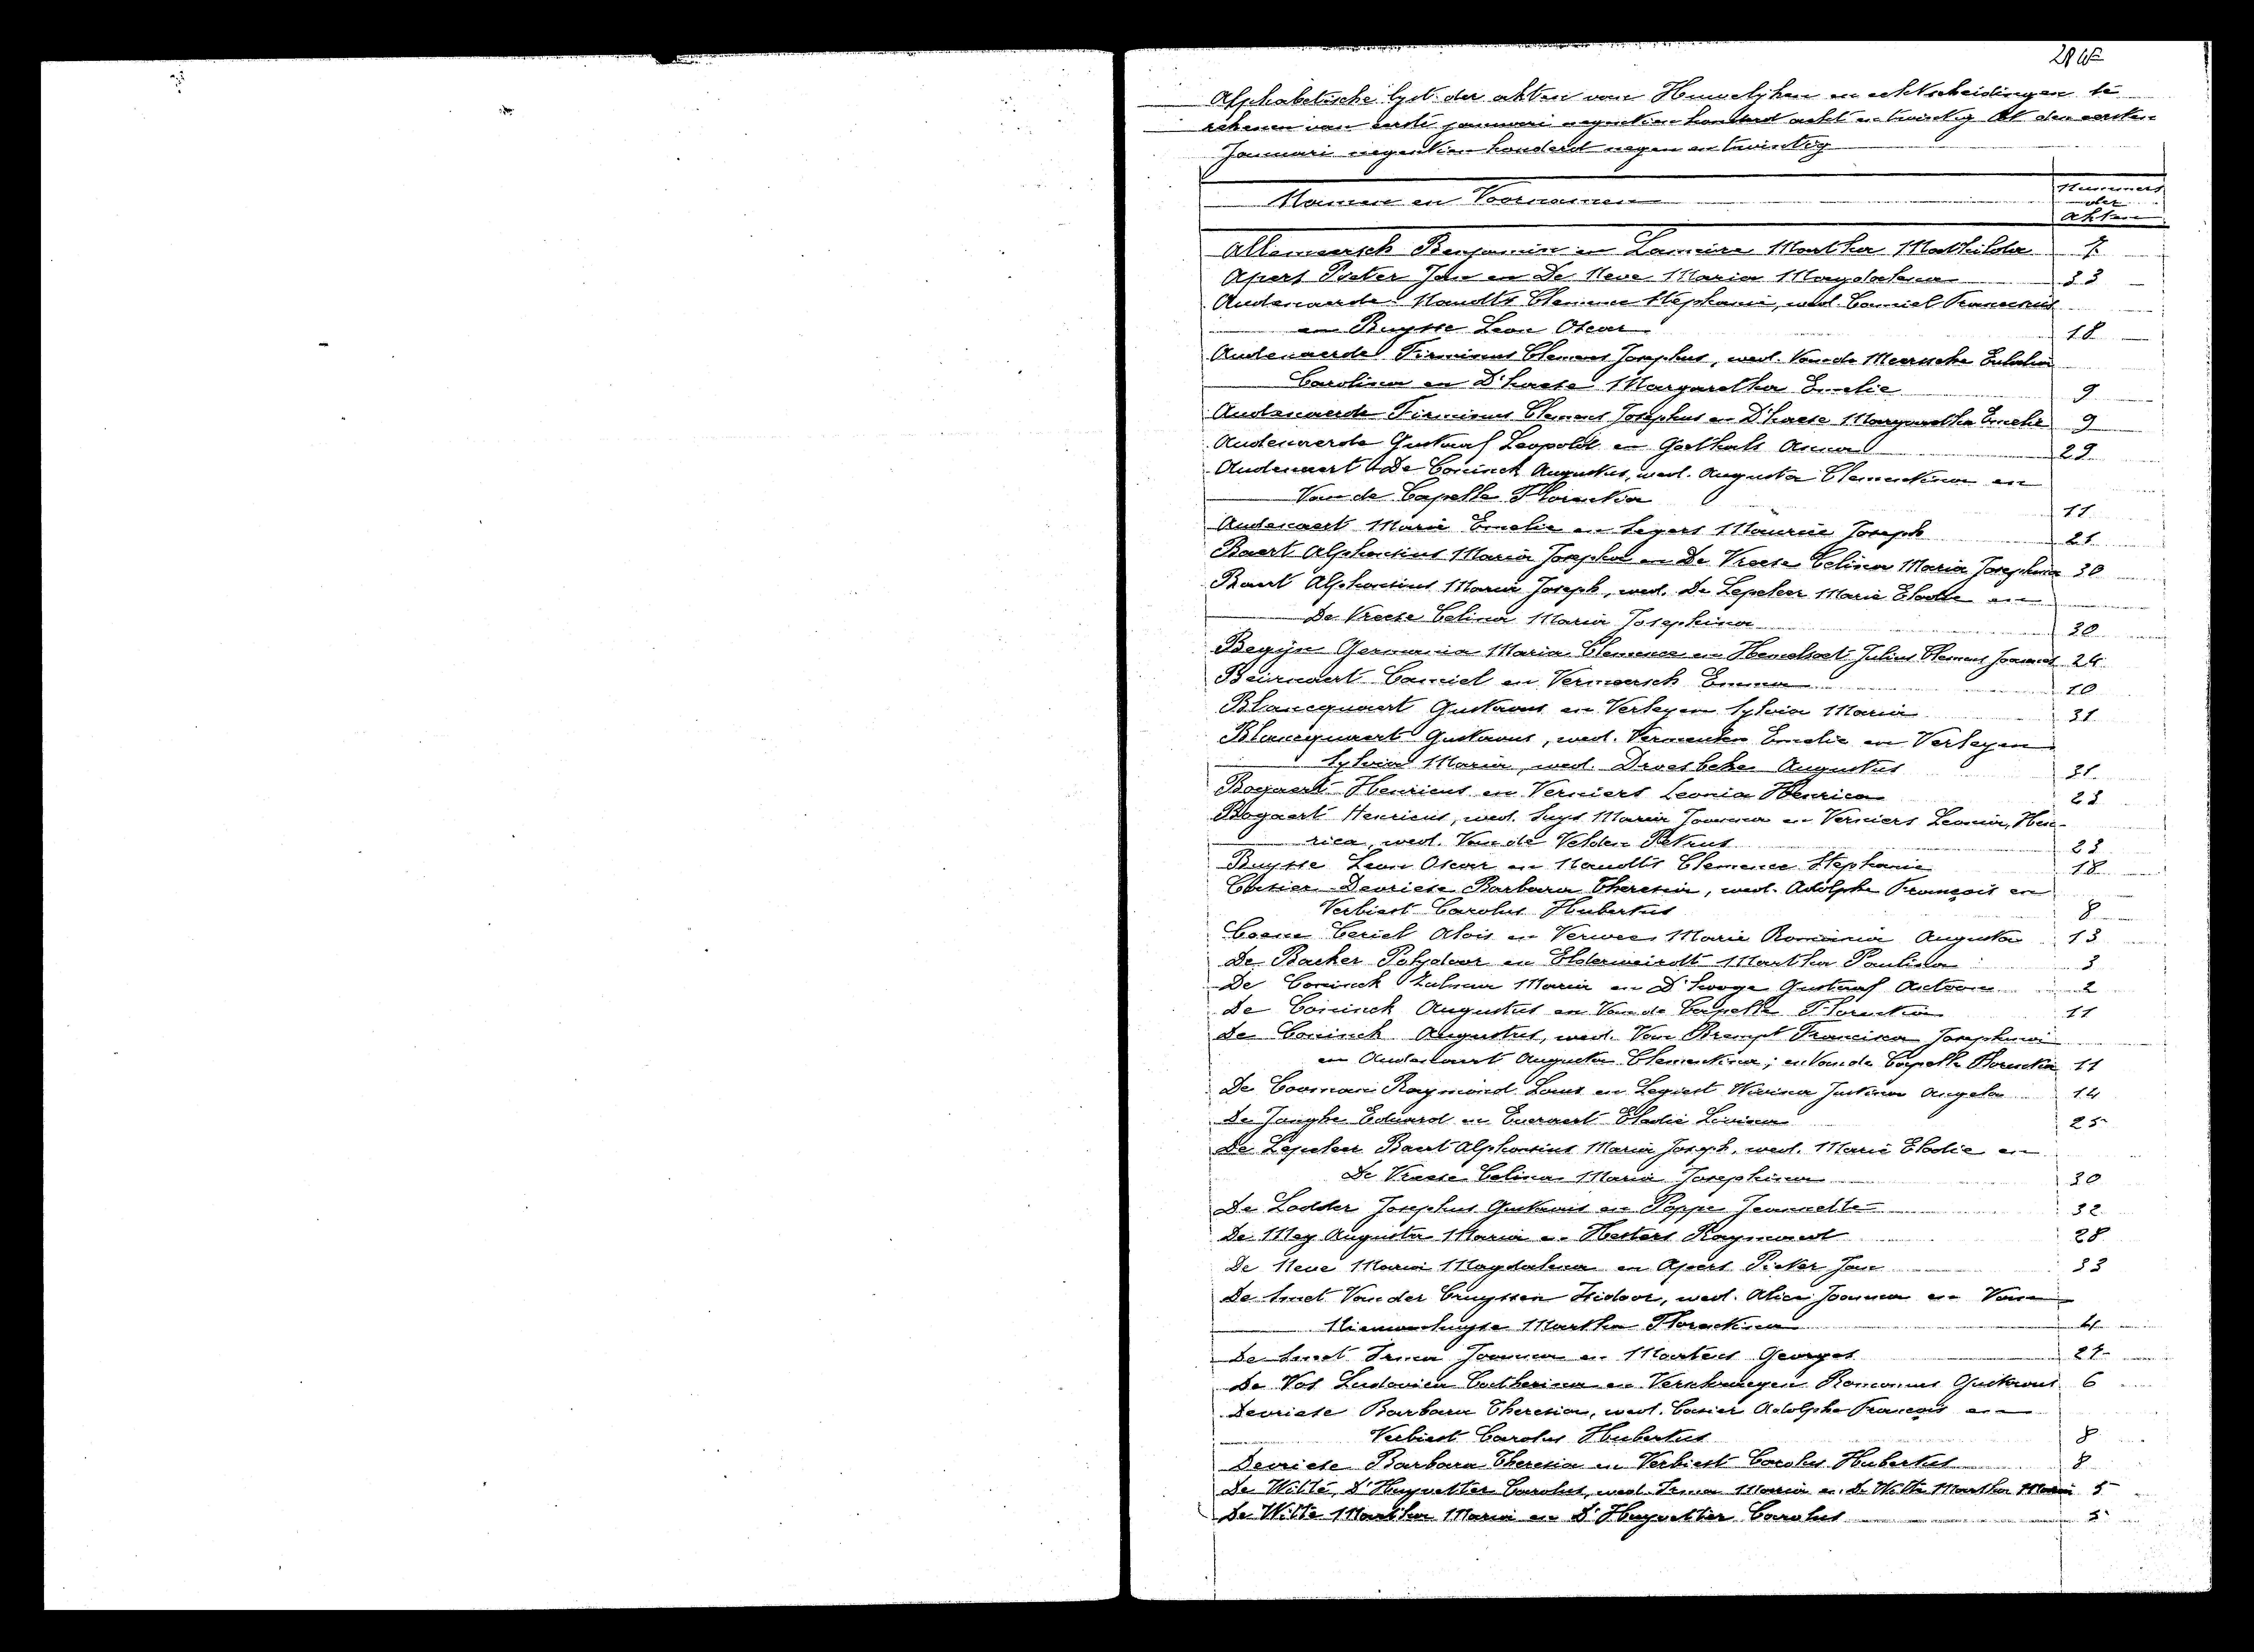 Alphabetische lyst der akten van Huwelijken en echtscheidingen te
rekenen van eerste januari negentien honderd acht en twintig tot den eersten
Januari negentien honderd negen en twintig
Namen en Voornamen
Nummers
der
akten
Allemeersch Benjamin en Lameire Martha Mathilda 7
Apers Pieter Jan en De Neve Maria Magdalena 33
Audenaerde Naudts Clemence Stephanie, wed. Camiel Franciscus
en Buysse Leon Oscar 18
Audenaerde Firminus Clement Josephus, wed. Van de Meersche Eulalia
Carolina en D'haese Margaretha Emelie 9
Audenaerde Firminus Clement Josephus en D'haese Margaretha Emelie 9
Audenaerde Gustaaf Leopold en Goethals Anna 29
Audenaert De Coninck Augustus, wed. Augusta Clementina en
Van de Capelle Florentia 11
Audenaert Marie Emelie en Segers Maurice Joseph 21
Baert Alphonsius Maria Joseph en De Vreese Celina Maria Josephina 30
Baert Alphonsius Maria Joseph, wed. De Lepeleer Marie Elodie en
De Vreese Celina Maria Josephina 30
Begijn Germania Maria Clemence en Julius Clement Joannes 24
Beirnaert Camiel en Vermeersch Emma 10
Blancquaert Gustavus en Verleyen Sylvia Maria 31
Blancquaert Gustavus, wed. Emelie en Verleyen
Sylvia Maria, wed. Droesbeke Augustus 31
Bogaert Henricus en Verniers Leonia Henrica 23
Bogaert Henricus, wed. Suys Maria Joanna en Verniers Leonia, Hen-
rica, wed. Van de Velden Petrus 23
Buysse Leon Oscar en Naudts Clemence Stephanie 18
Casier Devriese Barbara Theresia, wed. Adolphe François en
Verbiest Carolus Hubertus 8
Coene Ceriel Alois en Verwee Marie Romania Augusta 13
De Backer Polydoor en Elderweirdt Martha Paulina 3
De Coninck Zulma Maria en D'hooge Gustaaf Antoon 2
De Coninck Augustus en Van de Capelle Florentia 11
De Coninck Augustus, wed. Van Brempt Francisca Josephina
en Audenaert Augusta Clementina; en Van de Capelle Florentia 11
De Cooman Raymond Louis en Legiest Justina Angela 14
De Jonghe Eduard en Everaert Elodie Livina 25
De Lepeleer Baert Alphonsius Maria Joseph, wed. Marie Elodie en
De Vreese Celina Maria Josephina 30
De Lodder Josephus Gustavus en Poppe Jeannette 32
De Mey Augusta Maria en Hesters Raymond 28
De Neve Maria Magdalena en Apers Pieter Jan 33
De Smet Van der Cruyssen Isidoor, wed. Alice Joanna en Van
Nieuwenhuyse Martha Florentina 4
De Smet Irma Joanna en Martens Georges 27
De Vos Ludovica Catherina en Verschraegen Romanus Gustavus 6
Devriese Barbara Theresia, wed. Casier Adolphe François en
Verbiest Carolus Hubertus 8
Devriese Barbara Theresia en Verbiest Carolus Hubertus 8
De Witte D'Huyvetter Carolus, wed. Irma Maria en De Witte Martha Maria 5
De Witte Martha Maria en D'Huyvetter Carolus 5